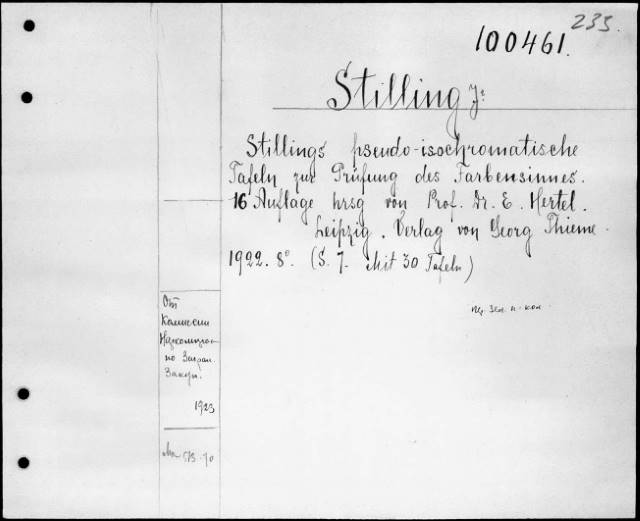 235.
100461.
Stilling J:
Stillings pseudo-isochromatische
Tafeln zur Prüfung des Farbensinnes.
16 Auflage hrsg von Prof. Dr. E. Hertel.
Leipzig. Verlag von Georg Thieme.
1922. 8°. (S. 7. Mit 30 Tafeln)
От
Комиссии
по
1923